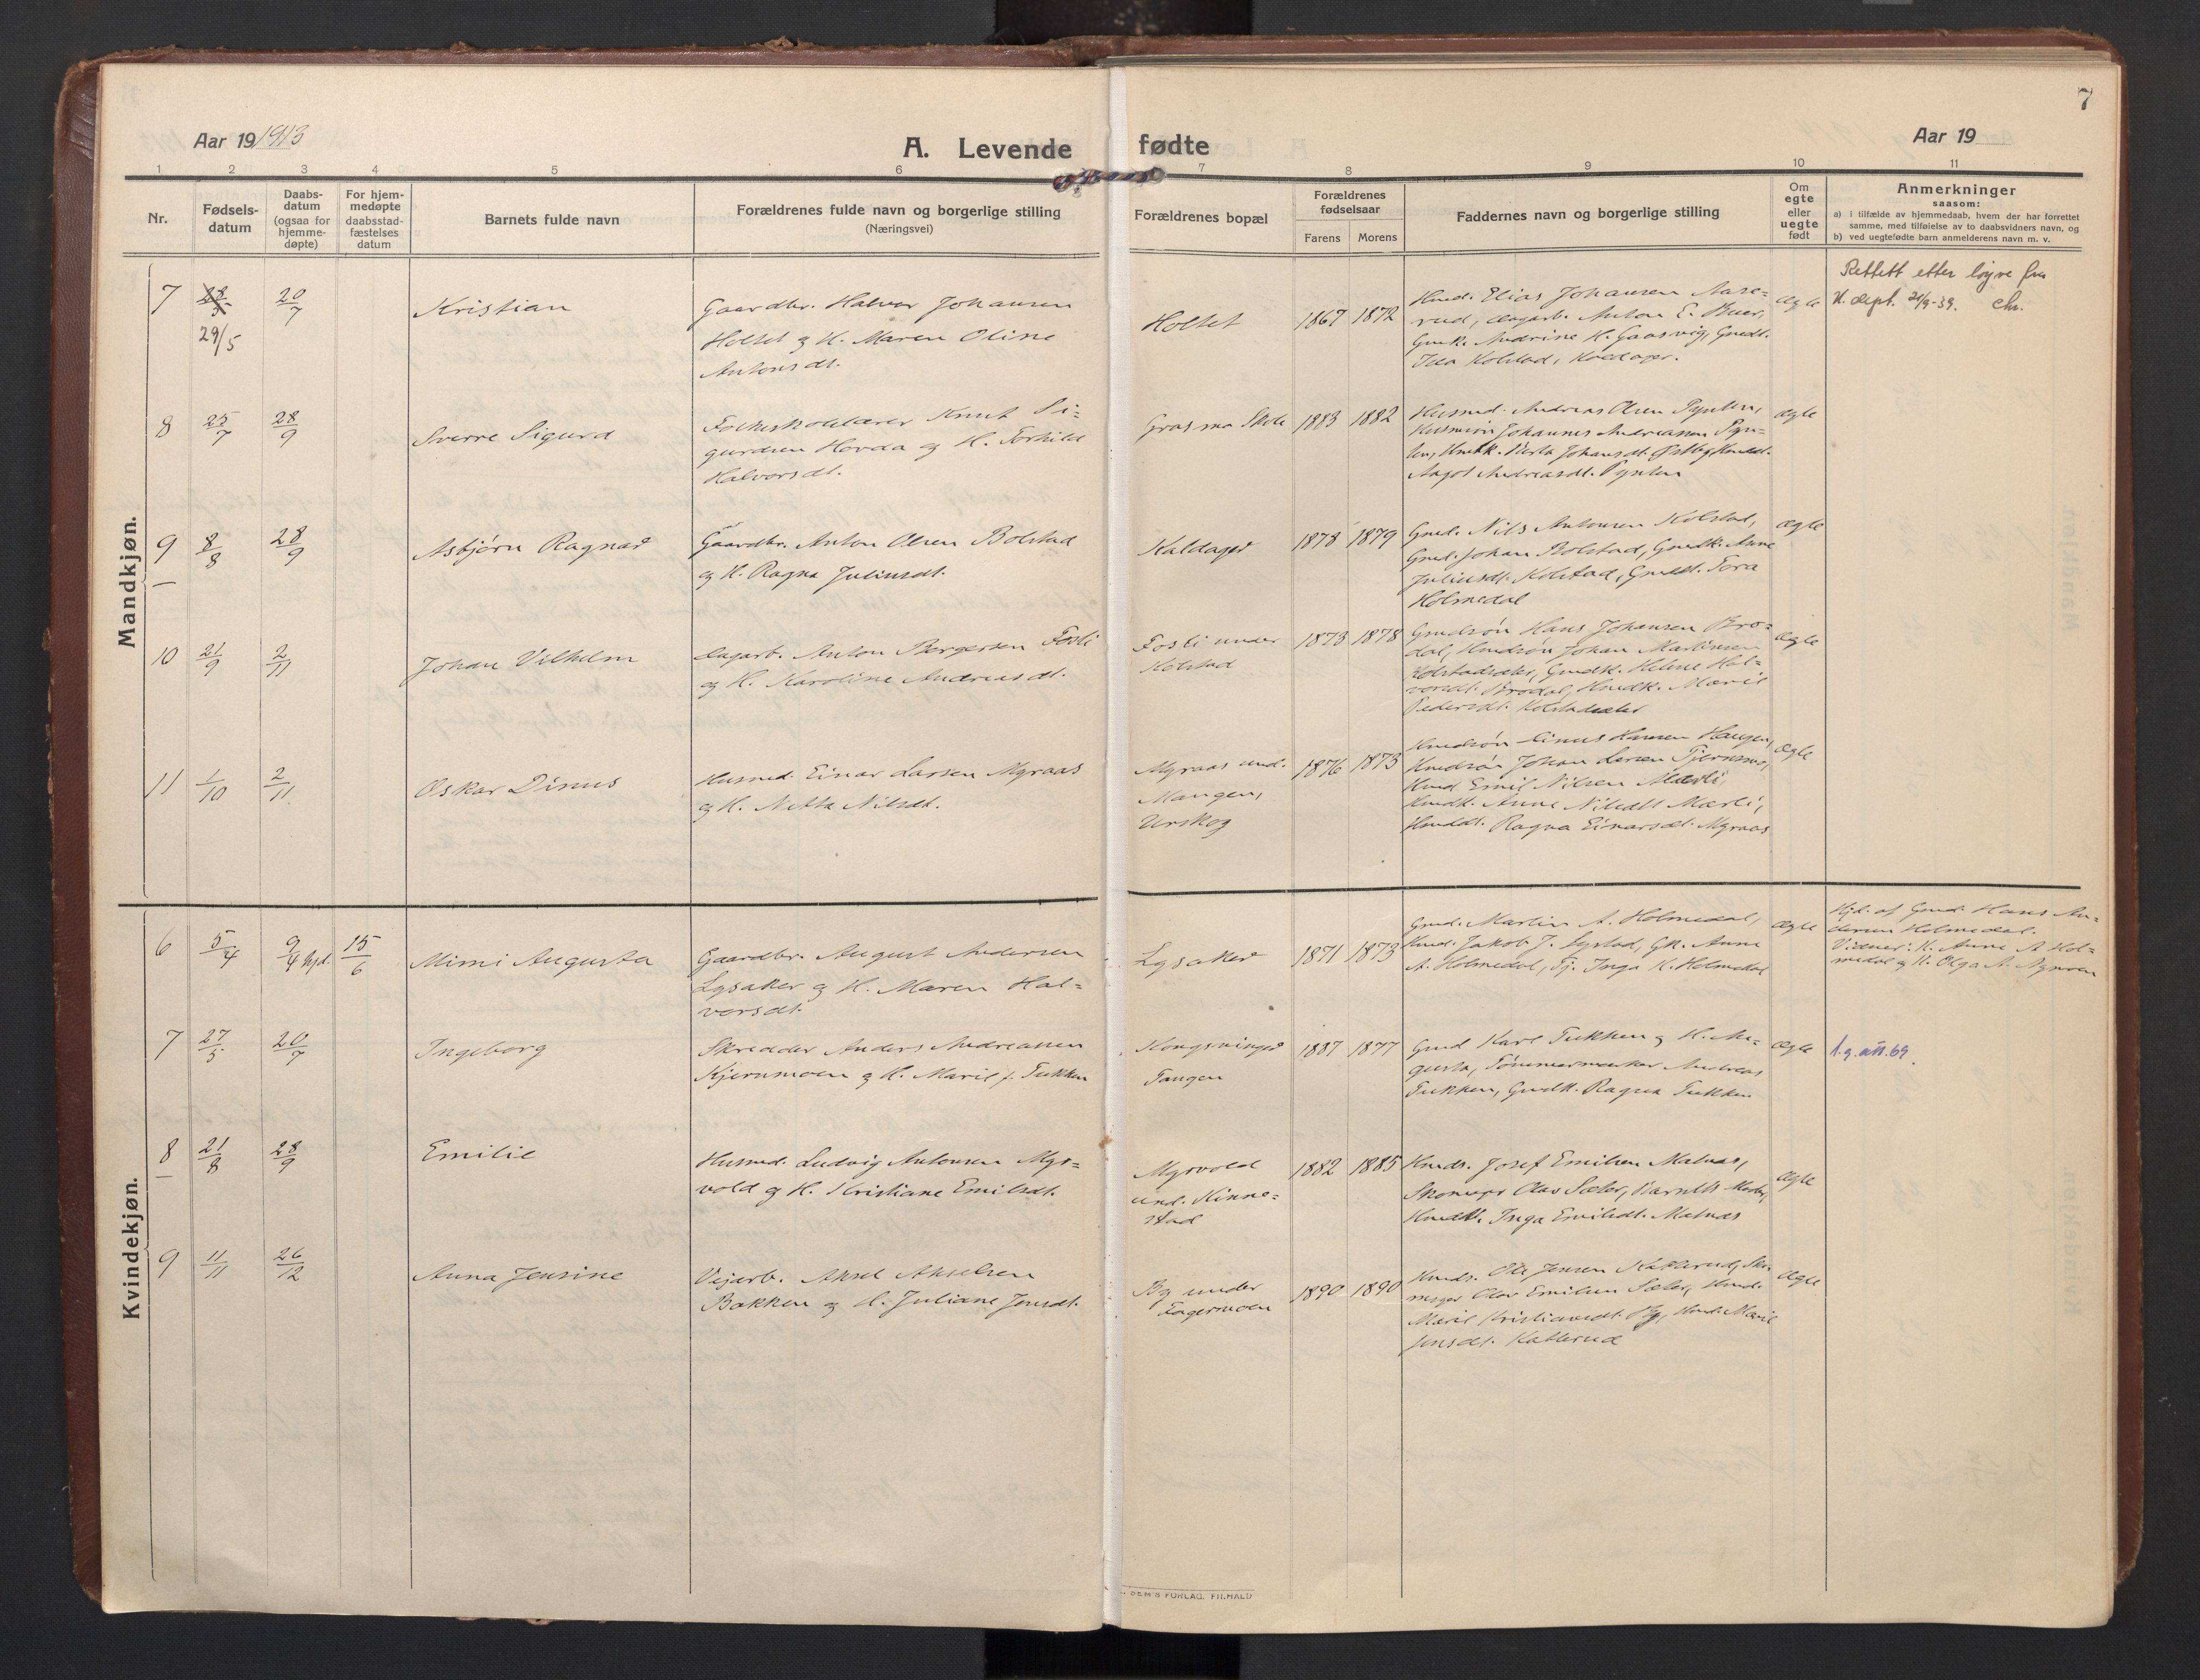 7
Aar 19 1913
A. Levende fødte
Aar 19
1 2 3 4 5 6 7 8 9 10 11
Nr.
Fødsels-
datum
Daabs-
datum
(ogsaa for
hjemme-
døpte)
For hjem-
medøpte
daabsstad-
fæstelses
datum
Barnets fulde navn
Forældrenes fulde navn og borgerlige stilling
(Næringsvei)
Forældrenes bopæl
Forældrenes
fødselsaar
Farens Morens
Faddernes navn og borgerlige stilling
Om
egte
eller
uegte
født
Anmerkninger
saasom:
a) i tilfælde av hjemmedaab, hvem der har forrettet
samme, med tilføielse av to daabsvidners navn, og
b) ved uegtefødte barn anmelderens navn m. v.
Mandkjøn.
7 29/5 20/7 Kristian
Gaardbr. Halvor Johansen
Holtet og H. Maren Oline
Antonsdt.
Holtet 1867 1872
Elias Johansen Aase-
rud, Dagarb. Anton E. Buer,
Gmk. Andrine K. Gaasvig, Gmdt.
Kolstad, Kaldager.
ægte
Rettett etter brev fra
K. dept. 21/9-39. Chr.
8 25/7 28/9 Sverre Sigurd
Folkeskolelærer Knut Si-
gurdsen Hovda og H. Torhild
Halvorsdt.
Grasmo Skole 1883 1882
Husmd. Andreas Olsen Pynten,
Johannes Andreassen Pyn-
ten, Johansdt. Østby,
Aagot Andreasdt. Pynten
ægte
9 8/8 28/9 Asbjørn Ragnar
Gaardbr. Anton Olsen Bolstad
og H. Ragna Juliusdt.
Kaldager 1878 1879
Gmd. Nils Antonsen Kolstad,
Gmd. Johan Bolstad, Gmdk. Anne
Juliusdt. Kolstad, Gmdt. Tora
Holmedal
ægte
10 21/9 2/11 Johan Vilhelm
Dagarb. Anton Bergersen Fosli
og H. Karoline Andreasdt.
Fosli under
Kolstad
1873 1878
Gmdsøn Hans Johansen Bro-
dal, Hmdsøn Johan Martinsen
Kolstadsæter, Gmdk. Helene Hal-
vorsdt. Brodal, Hmdk. Marie
Pedersdt. Kolstadsæter
ægte
11 1/10 2/11 Oskar Dinus
Husmd. Einar Larsen Myraas
og H. Netta Nilsdt.
Myraas und.
Mangen,
Urskog
1876 1873
Hmdsøn Hansen Haugen,
Hmdsøn Johan Larsen
Hmd Emil Nilsen Mærli,
Hmdt. Anne Nilsdt Mærli,
Hmddt. Ragna Einarsdt. Myraas
ægte
Kvindekjøn.
6 5/4 9/4 hjd. 15/6 Mimi Augusta
Gaardbr. August Andersen
Lysaker og H. Maren Hal-
vorsdt.
Lysaker 1871 1873
Gmd. Martin A. Holmedal,
Gmd. Jakob J. Systad, Gk. Anne
A. Holmedal, Tj. Inga K. Holmedal
ægte
Hjd. af Gmd. Hans An-
dersen Holmedal.
Vidner: K. Anne A. Hol-
medal og K. Olga A. Nymoen
7 27/5 20/7 Ingeborg
Skrædder Anders Andreassen
Kjernmoen og H. Marie f. Tukken
Kongsvinger
Tangen
1887 1877
Gmd Karl Tukken og H. Au-
gusta, Tømmermærker Andreas
Tukken, Gmdk. Ragna Tukken
ægte
8 21/8 28/9 Emilie
Husmd. Ludvig Antonsen Myr-
vold og H. Kristiane Emilsdt.
Myrvold
und. Kinne-
stad
1882 1885
Hmds. Josef Emilsen Malnæs,
Skomager Olav Sæter, Barnets Moder,
Hmdt. Inga Emilsdt. Malnæs
ægte
9 11/11 26/12 Anna Jensine
Vejarb. Aksel Akselsen
Bakken og H. Juliane Jensdt.
By under
Fagermoen
1890 1890
Hmds. Ole Jensen Katterud, Sko-
mager Olav Emilsen Sæter,
Marie Kristiansdt. By, Marie
Jensdt. Katterud
ægte
FORLAG, FR.HALD